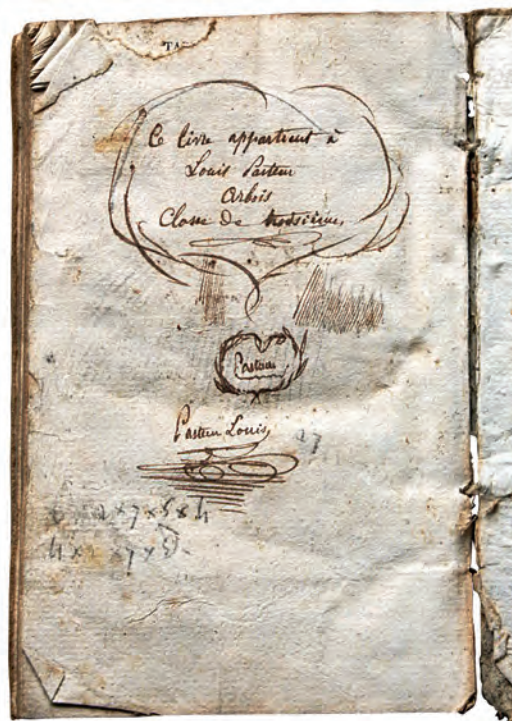 TA
Ce livre appartient à
Louis Pasteur
Arbois
Classe de troisième
Pasteur
Pasteur Louis
27
x 7 x 5 x 4
4 x x 7 x 5